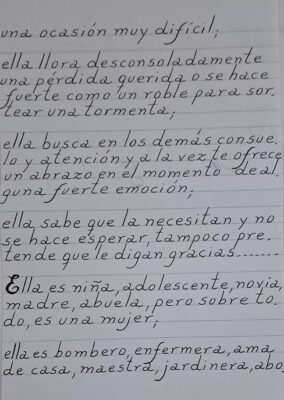 una ocasión muy difícil;
ella llora desconsoladamente
una pérdida querida o se hace
fuerte como un roble para sor.
tear una tormenta;
ella busca en los demás consue.
lo y atención y a la vez te ofrece
un abrazo en el momento de al.
guna fuerte emoción;
ella sabe que la necesitan y no
se hace esperar, tampoco pre.
tende que le digan gracias.......
Ella es niña, adolescente, novia,
madre, abuela, pero sobre to.
do, es una mujer;
ella es bombero, enfermera, ama
de casa, maestra, jardinera, abo